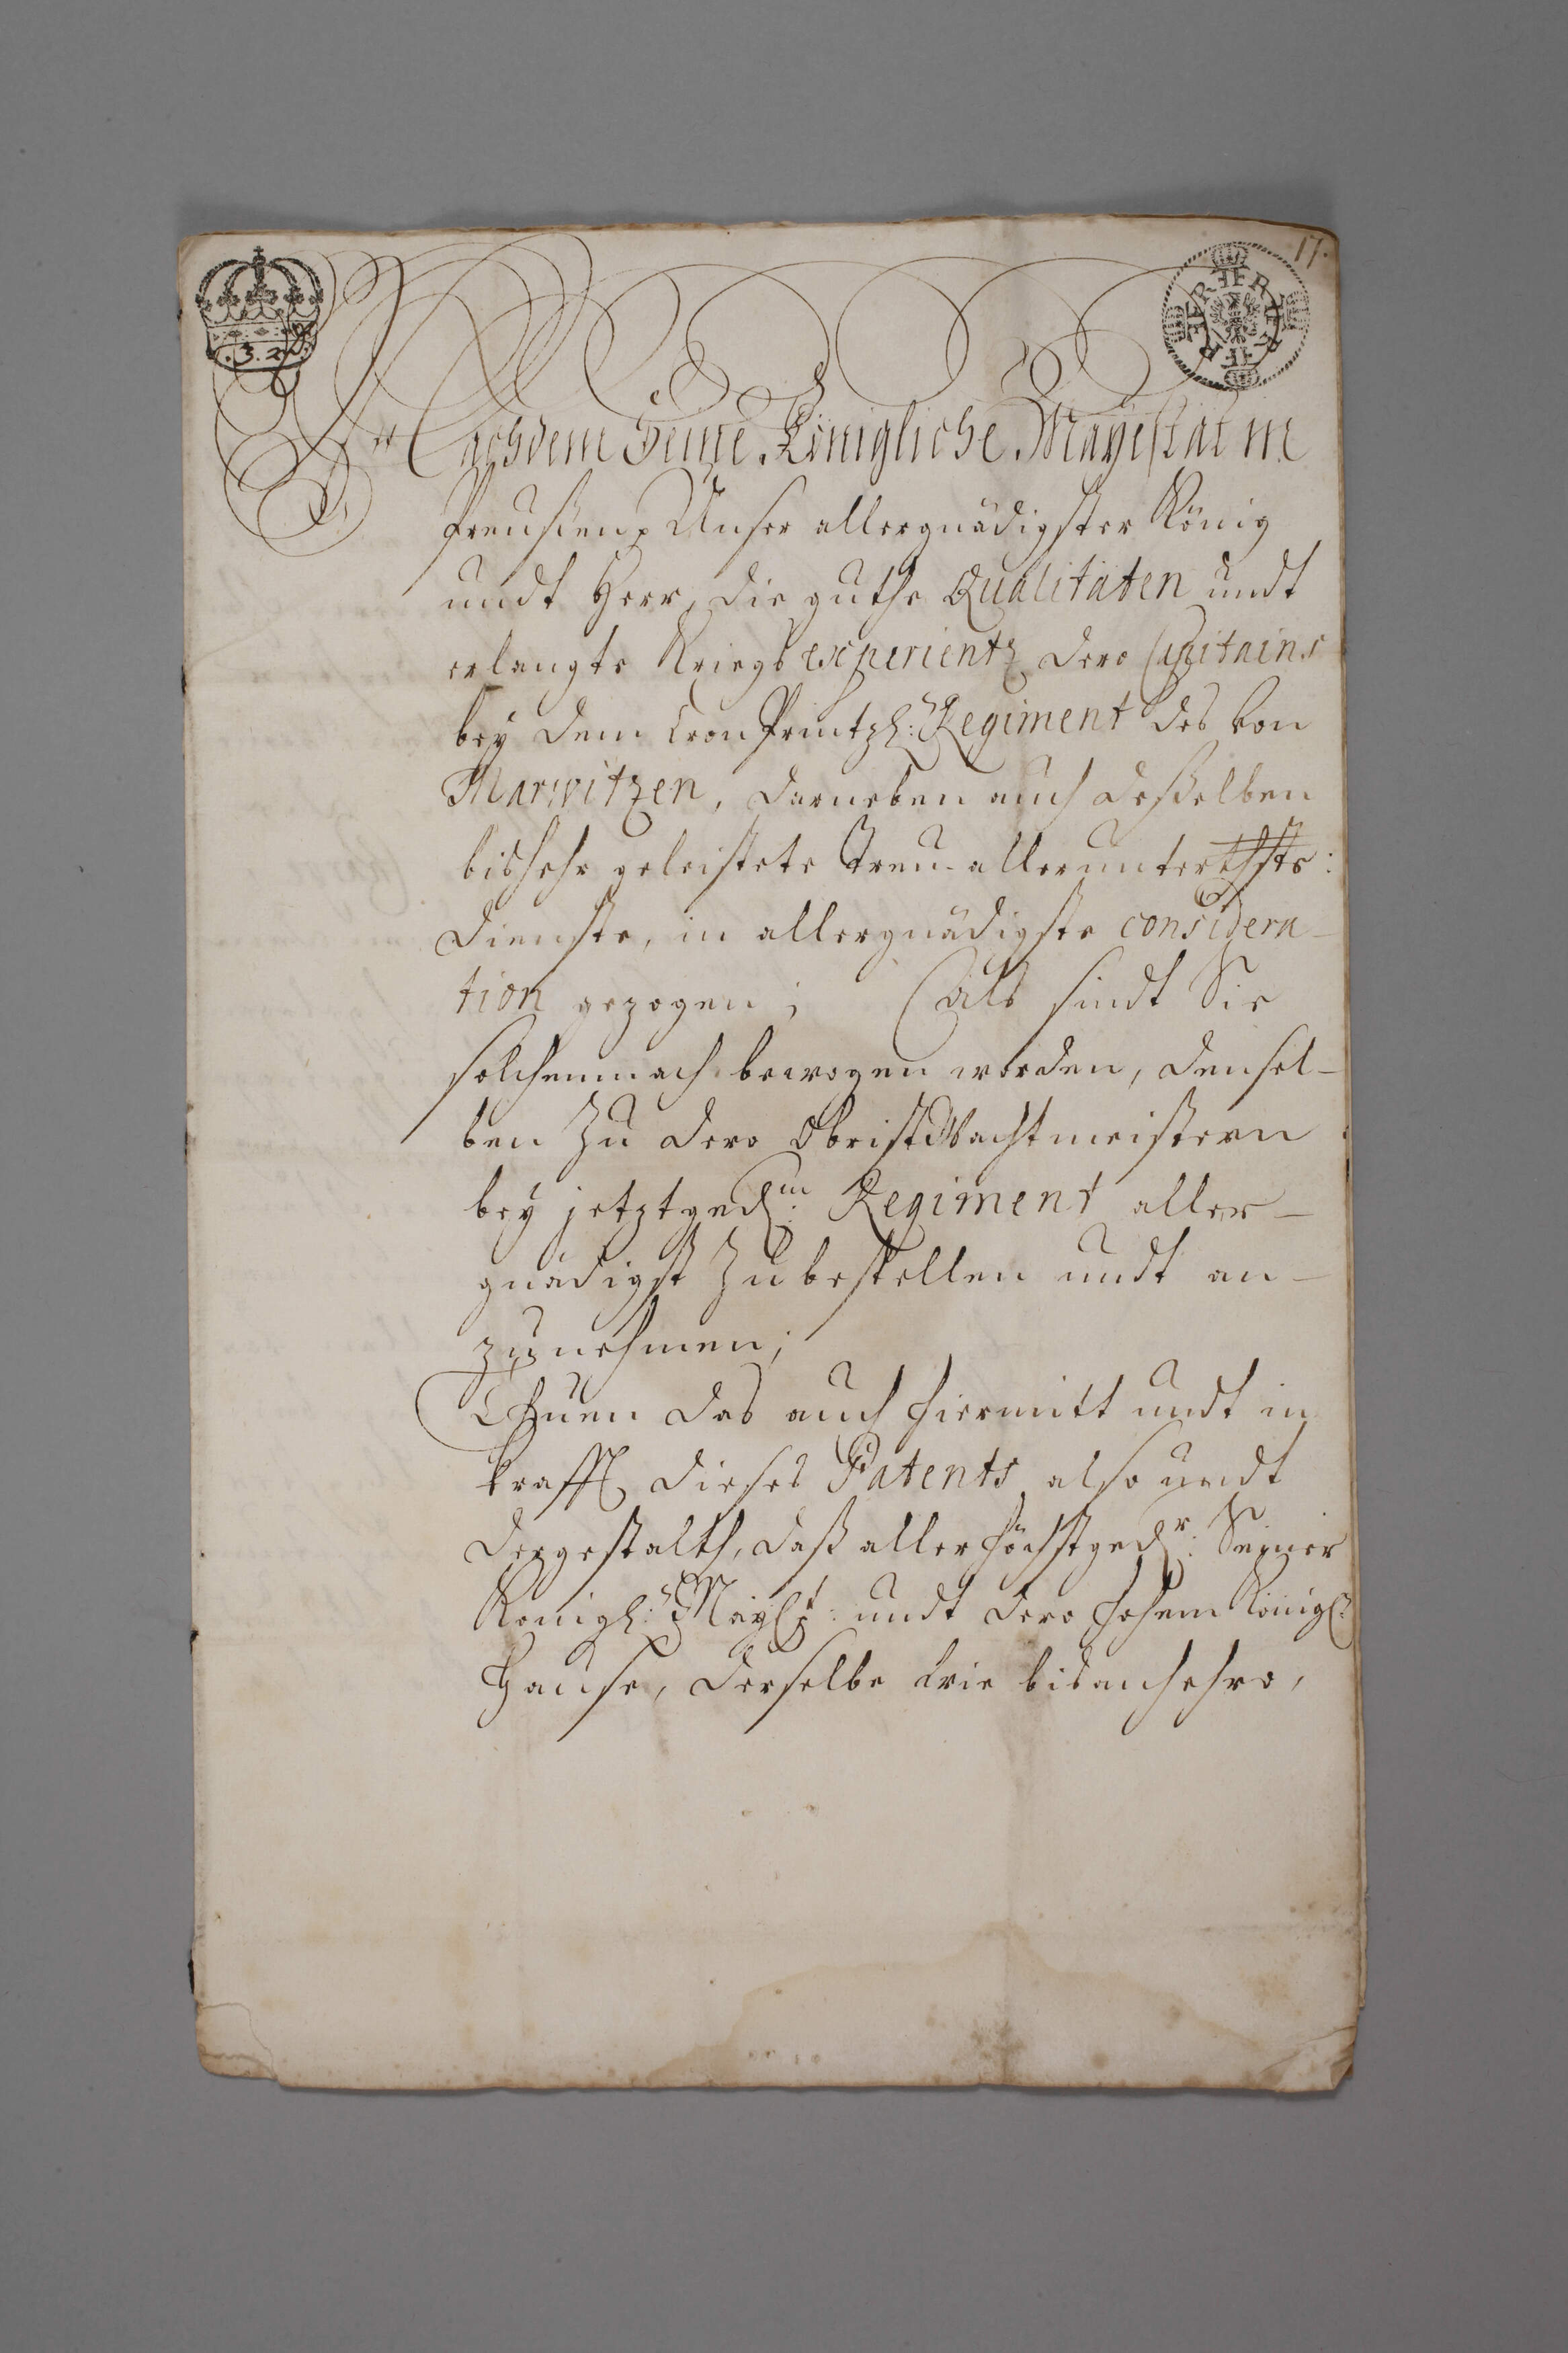 17.
Nachdem Seine Königliche Mayestät in
Preußen p Unser allergnädigster König
undt Herr, die guthe Qualitäten undt
erlangte Kriegs experientz dero Capitains
bey dem CronPrintzl: Regiment des von
Marwitzen, darneben auch deßelben
bishehr geleistete treu-allerunterthste:
Dienste, in allergnädigste considera-
tion gezogen; Als sindt Sie
solchemnach bewogen worden, densel-
ben zu dero ObristWachtmeistern
bey jetztged:m Regiment aller-
gnädigst zubestellen undt an-
zunehmen;
Thuen das auch hiermitt undt in
krafft dieses Patents also undt
dergestalth, daß allerhöchstged:r Seiner
Königl: Mayst: undt dero hohem Königl:
Hause, derselbe wie bisanhehro,